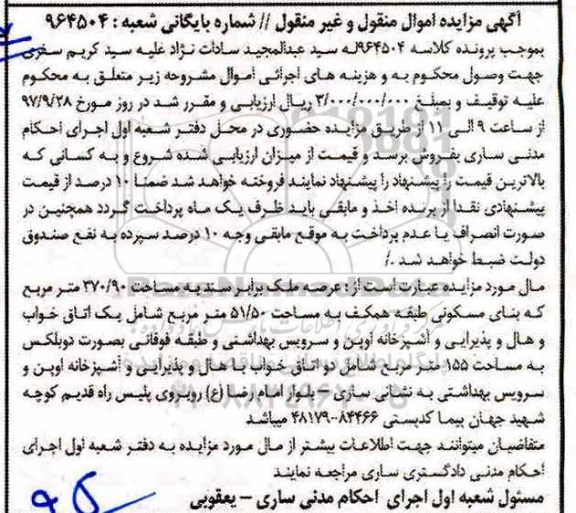 آگهی مزایده اموال منقول و غیر منقول // شماره بایگانی شعبه : ۹۶۴۵۰۴
بموجب پرونده کلاسه ۹۶۴۵۰۴له سید عبدالمجید سادات نژاد علیه سید کریم سخری
جهت وصول محکوم به و هزینه های اجرائی اموال مشروحه زیر متعلق به محکوم
علیه توقیف و بمبلغ ۳/۰۰۰/۰۰۰/۰۰۰ ریال ارزیابی و مقرر شد در روز مورخ ۹۷/۹/۲۸
از ساعت ۹ الی ۱۱ از طریق مزایده حضوری در محل دفتر شعبه اول اجرای احکام
مدنی ساری بفروش برسد و قیمت از میزان ارزیابی شده شروع و به کسانی که
بالاترین قیمت را پیشنهاد را پیشنهاد نمایند فروخته خواهد شد ضمنا ۱۰ درصد از قیمت
پیشنهادی نقدا از برنده اخذ و مابقی باید ظرف یک ماه پرداخت گردد همچنین در
صورت انصراف یا عدم پرداخت به موقع مابقی وجه ۱۰ درصد سپرده به نفع صندوق
دولت ضبط خواهد شد ./
مال مورد مزایده عبارت است از : عرصه ملک برابر سند به مساحت ۳۷۰/۹۰ متر مربع
که بنای مسکونی طبقه همکف به مساحت ۵۱/۵۰ متر مربع شامل یک اتاق خواب
و هال و پذیرایی و آشپزخانه اوپن و سرویس بهداشتی و طبقه فوقانی بصورت دوبلکس
به مساحت ۱۵۵ متر مربع شامل دو اتاق خواب با هال و پذیرایی و آشپزخانه اوپن و
سرویس بهداشتی به نشانی ساری – بلوار امام رضا (ع) روبروی پلیس راه قدیم کوچه
شهید جهان پیما کدپستی ۸۴۴۶۶-۴۸۱۷۹ میباشد
متقاضیان میتوانند جهت اطلاعات بیشتر از مال مورد مزایده به دفتر شعبه اول اجرای
احکام مدنی دادگستری ساری مراجعه نمایند
مسئول شعبه اول اجرای احکام مدنی ساری – یعقوبی